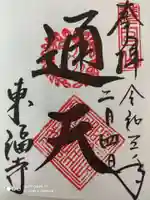 奉拝
令和三年
二月四日
通天
東福寺